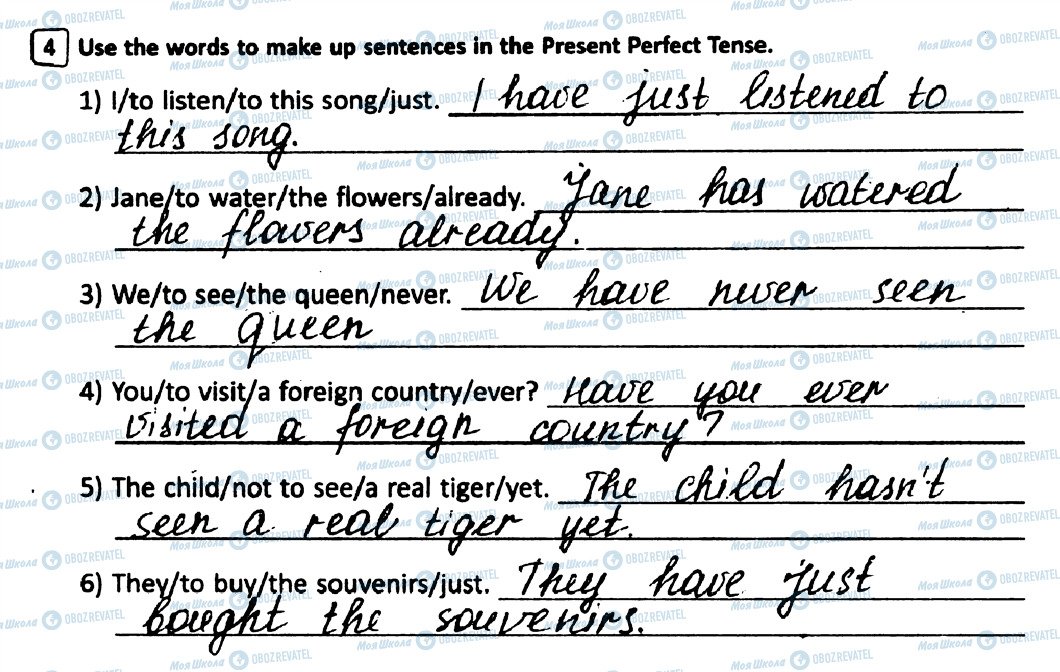 4 Use the words to make up sentences in the Present Perfect Tense.
1) I/to listen/to this song/just. I have just listened to
this song.
2) Jane/to water/the flowers/already. Jane has watered
the flowers already.
3) We/to see/the queen/never. We have never seen
the queen
4) You/to visit/a foreign country/ever? Have you ever
visited a foreign country?
5) The child/not to see/a real tiger/yet. The child hasn't
seen a real tiger yet.
6) They/to buy/the souvenirs/just. They have just
bought the souvenirs.